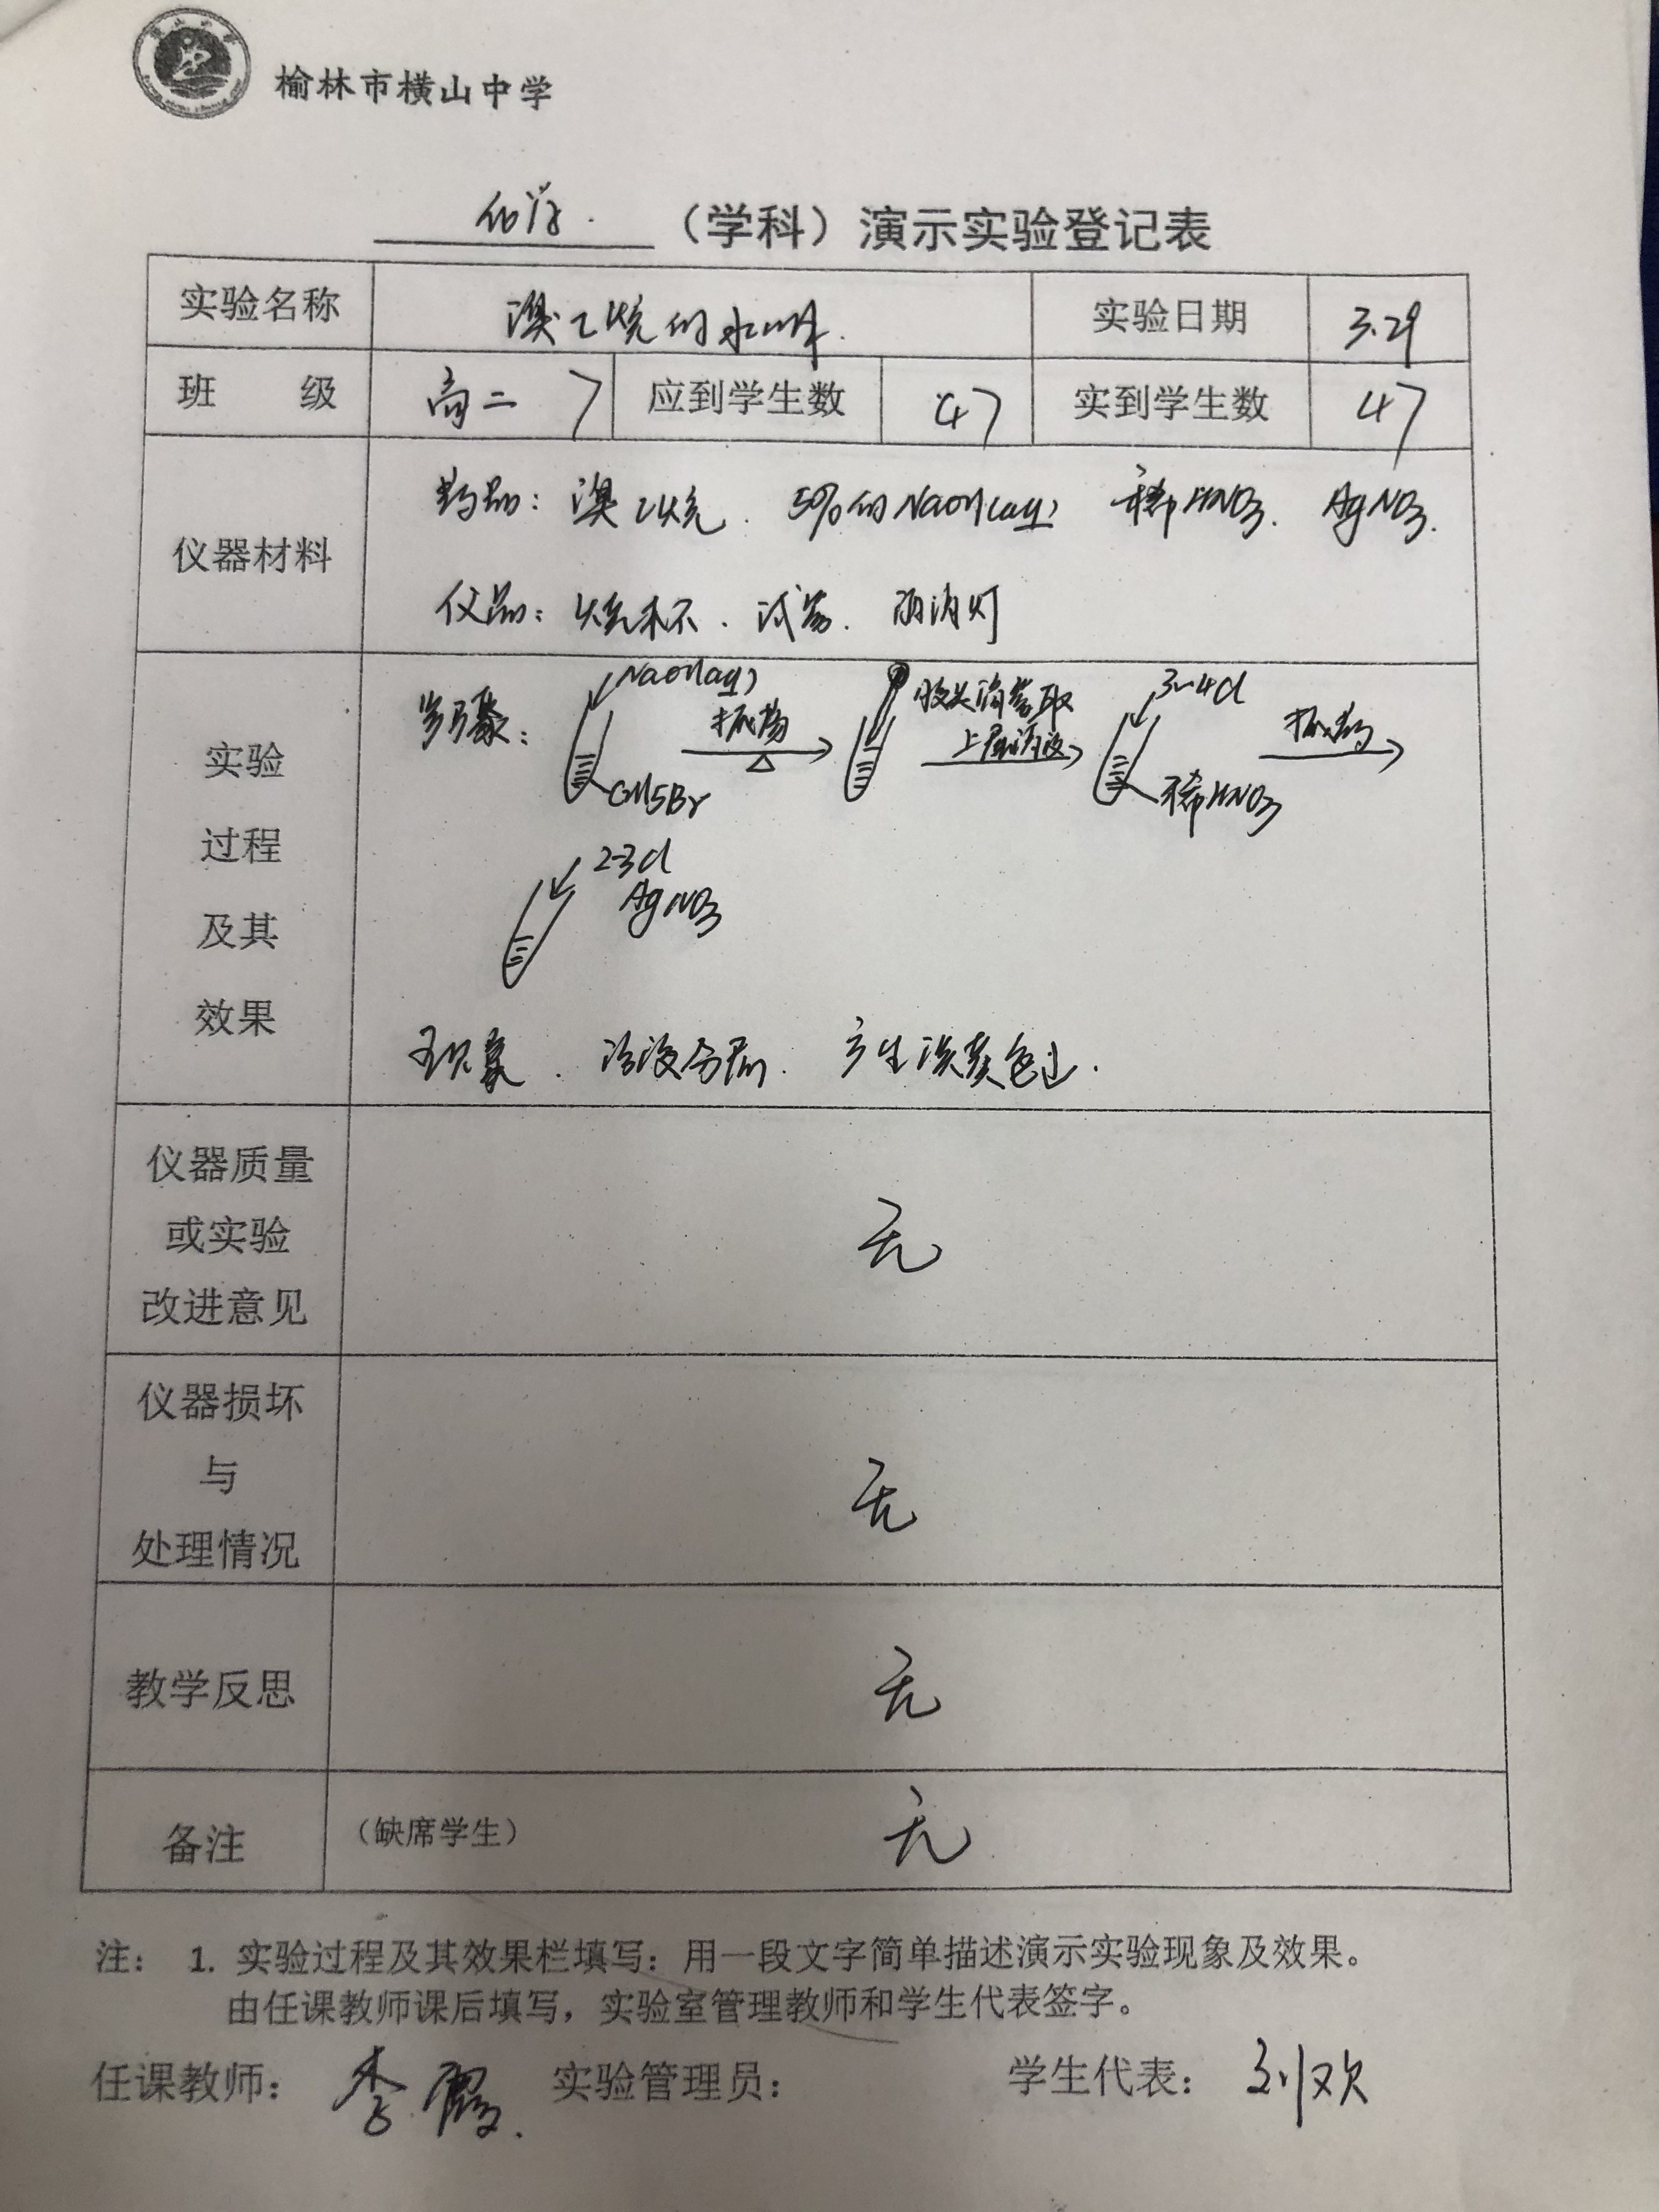 榆林市横山中学
化学.（学科）演示实验登记表
实验名称 溴乙烷的水解. 实验日期 3.29
班 级 高二 7 应到学生数 47 实到学生数 47
仪器材料
药品: 溴乙烷. 5%的NaOH(aq) 稀HNO3. AgNO3.
仪品: 烧杯. 试管. 酒精灯
实验
过程
及其
效果
步骤: NaOH(aq) C2H5Br 振荡 △ 胶头滴管取 上层清液 3~4d 稀HNO3 振荡
2-3d
AgNO3
现象. 溶液分层. 产生淡黄色↓.
仪器质量
或实验
改进意见
无
仪器损坏
与
处理情况
无
教学反思 无
备注 （缺席学生） 无
注： 1. 实验过程及其效果栏填写：用一段文字简单描述演示实验现象及效果。
由任课教师课后填写，实验室管理教师和学生代表签字。
任课教师： 李霞. 实验管理员： 学生代表： 刘欢